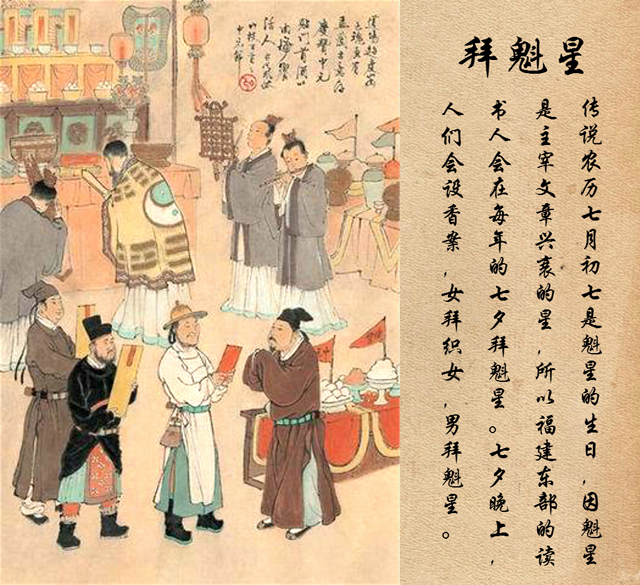 拜魁星
传说农历七月初七是魁星的生日，因魁星
是主宰文章兴衰的星，所以福建东部的读
书人会在每年的七夕拜魁星。七夕晚上，
人们会设香案，女拜织女，男拜魁星。
中元
中元節